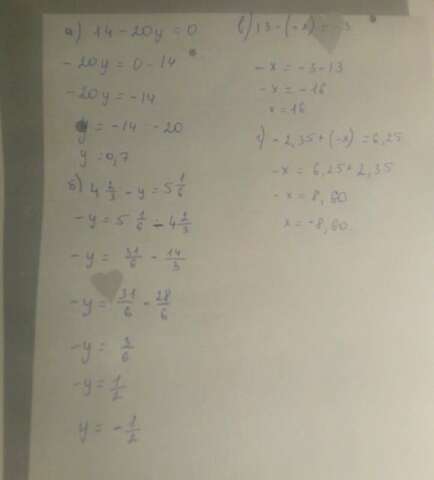 а) 14 - 20y = 0
- 20y = 0 - 14
- 20y = -14
y = -14 -20
y = 0,7
б) 4 2/3 - y = 5 1/6
- y = 5 1/6 - 4 2/3
- y = 31/6 - 14/3
- y = 31/6 - 28/6
- y = 3/6
- y = 1/2
y = - 1/2
в) 13 - (-x) = -3
- x = -3 - 13
- x = - 16
x = 16
г) - 2,35 + (-x) = 6,25
- x = 6,25 + 2,35
- x = 8,60
x = -8,60